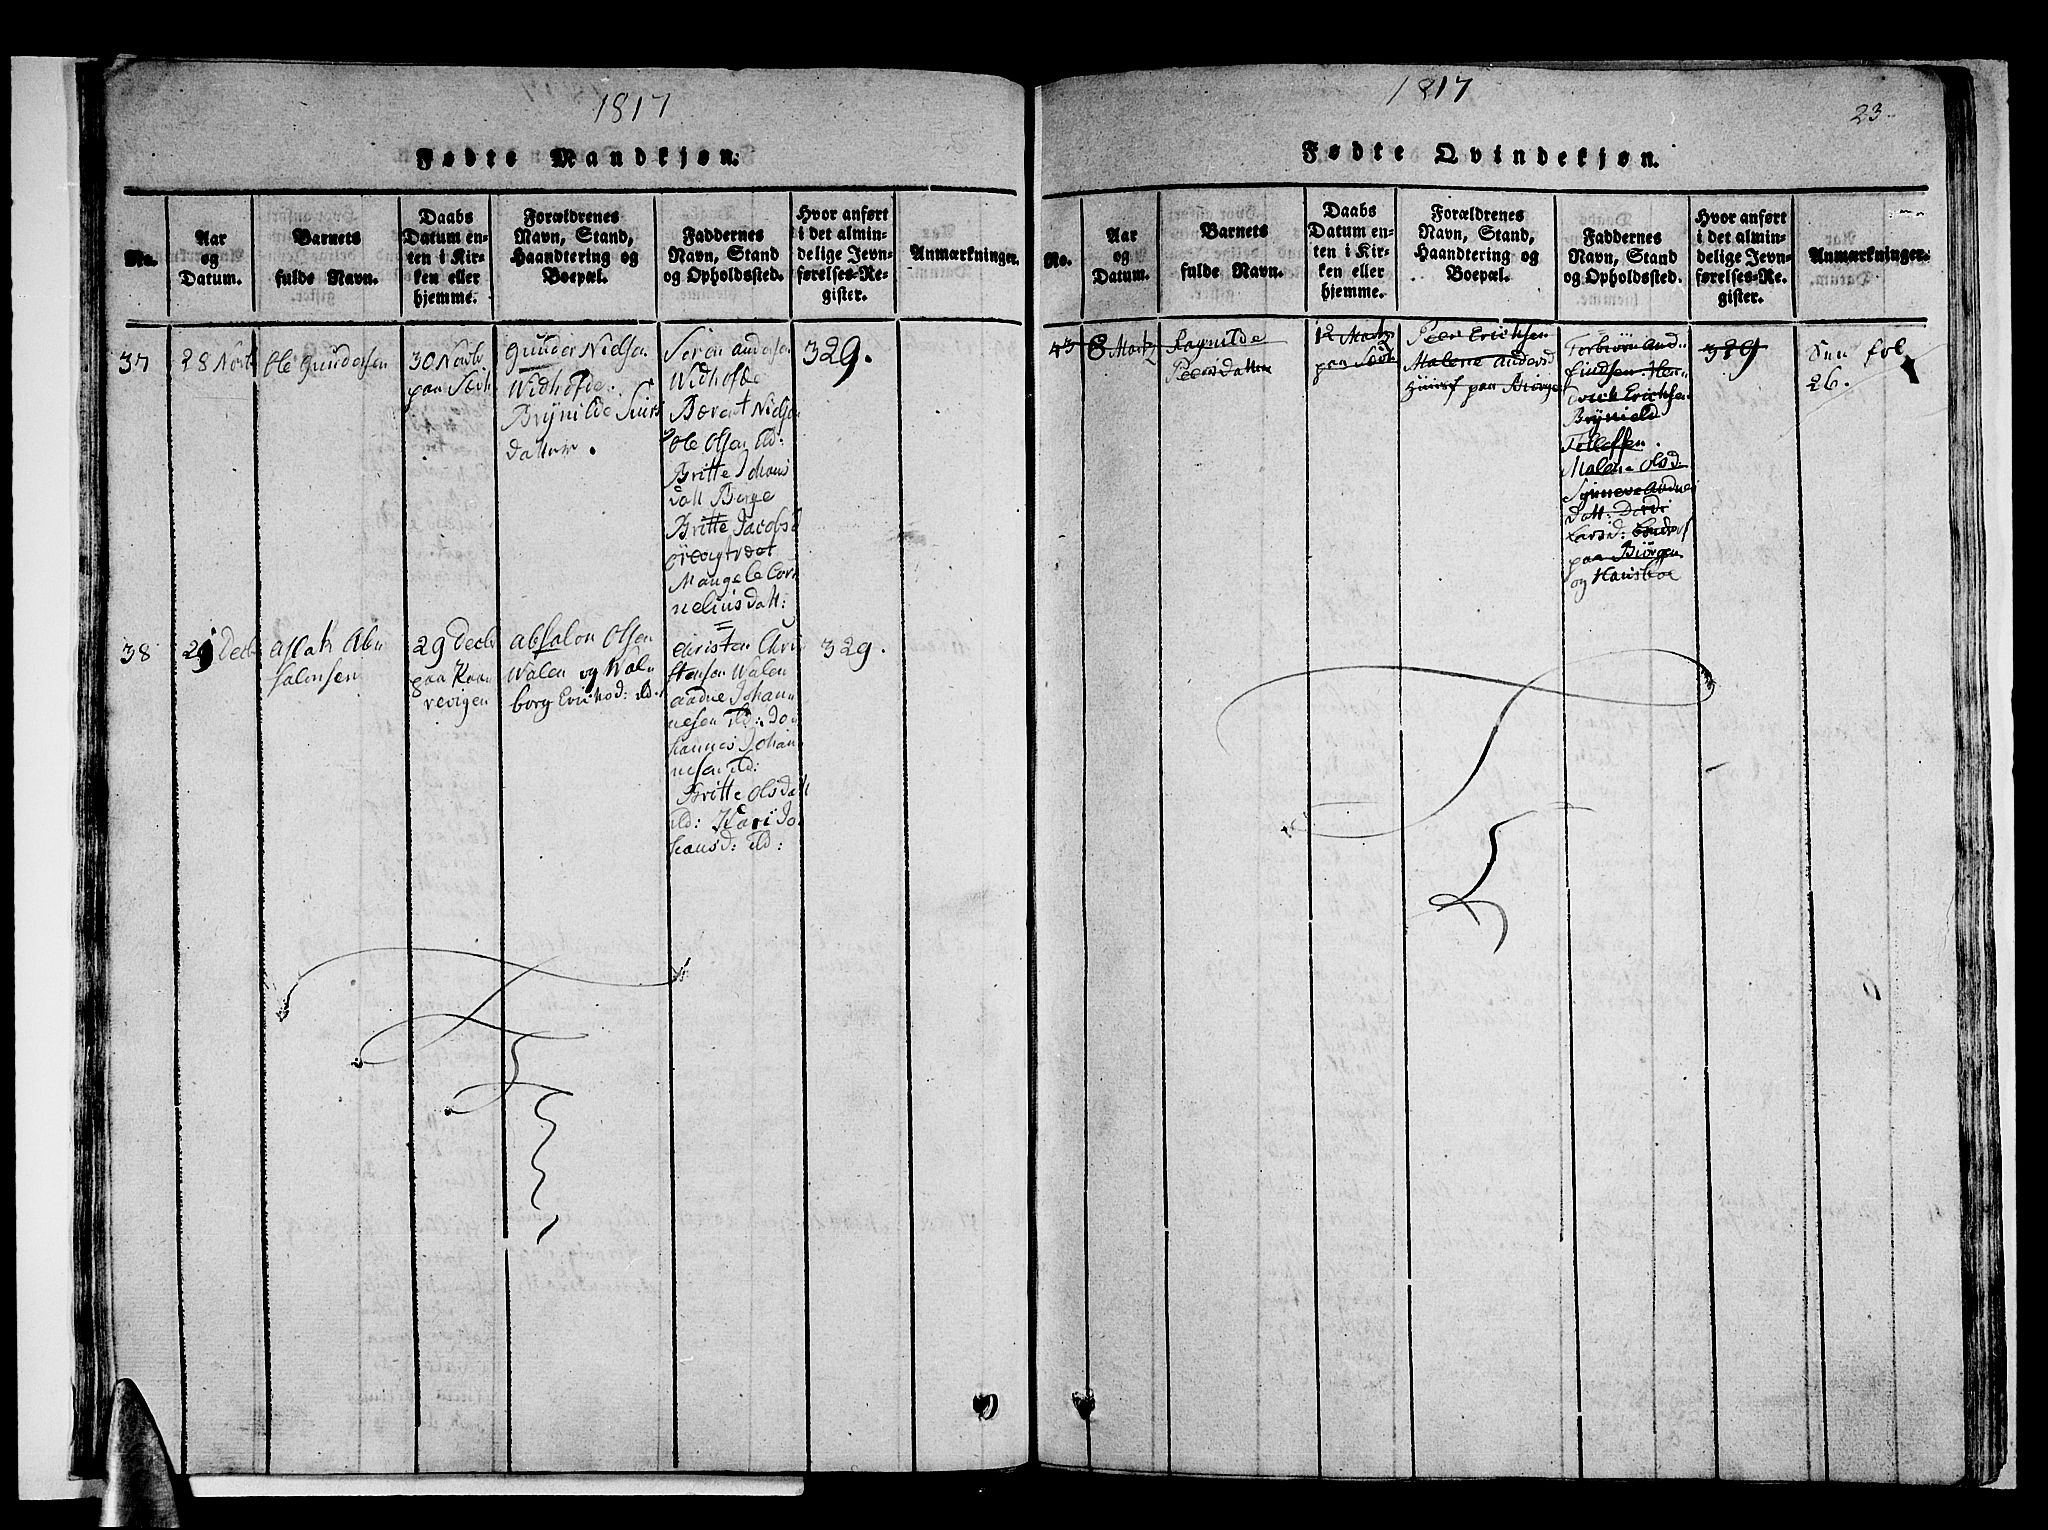 1817
Fødte Mandkjøn.
No.
Aar
og
Datum.
Barnets
fulde Navn.
Daabs
Datum en-
ten i Kir-
ken eller
hjemme.
Forældrenes
Navn, Stand,
Haandtering og
Boepæl.
Faddernes
Navn, Stand
og Opholdssted.
Hvor anført
i det almin-
delige Jevn-
førelses-Re-
gister.
Anmærkninger.
37
28 Novb
Ole Gundersen
30 Novbr
paa
Gunder Nielsen
Widhofde
Brynilde
datter.
Søren Andersen
Widhofde
Berent Nielsen
Ole Olsen ibd:
Britte Johans
datt Børge
Britte Jacobsd
Mangele Cor
neliusdatt:
329.
38
29 Decb
Aslak Ab
salonsen
29 Decbr
paa Kaar
revigen
Absalon Olsen
Walen og Wal
borg Erichsd: ibd.
Christen Chri
stensen Walen
Aadne Johan
nesen ibd: Jo
hannes Johan
nesen ibd:
Britte Olsdatt
ibd: Kari Jo
hansd: ibd:
329.
1817
23
Fødte Qvindekjøn.
No.
Aar
og
Datum.
Barnets
fulde Navn.
Daabs
Datum en-
ten i Kir-
ken eller
hjemme.
Forældrenes
Navn, Stand,
Haandtering og
Boepæl.
Faddernes
Navn, Stand
og Opholdssted.
Hvor anført
i det almin-
delige Jevn-
førelses-Re-
gister.
Anmærkninger.
43
8 Martz
Ragnilde
Peersdatter
12 Martz
paa
Peer Erichsen
Malene Andersd
paa
Torbiörn And
Erichsen
Brynield
Tollefsen.
Malene Olsd:
Synneve
datt:
Larsd:
paa Biörgen
og
329
26. fol